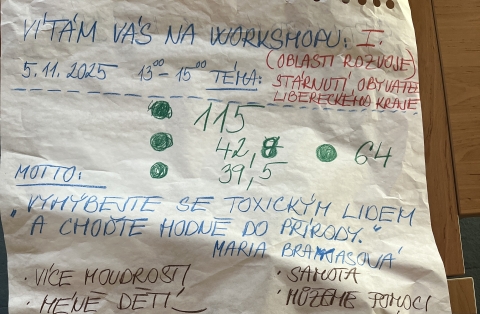 VÍTÁM VÁS NA WORKSHOPU: I.
(OBLASTI ROZVOJE)
5.11.2025 13⁰⁰ - 15⁰⁰ TÉMA: STÁRNUTÍ OBYVATEL
LIBERECKÉHO KRAJE
115
42,8 64
39,5
MOTTO:
"VYHÝBEJTE SE TOXICKÝM LIDEM
A CHOĎTE HODNĚ DO PŘÍRODY."
MARIA BRANYASOVÁ
· VÍCE MOUDROSTI
· SAMOTA
· MÉNĚ DĚTÍ
· MŮŽEME POMOCI